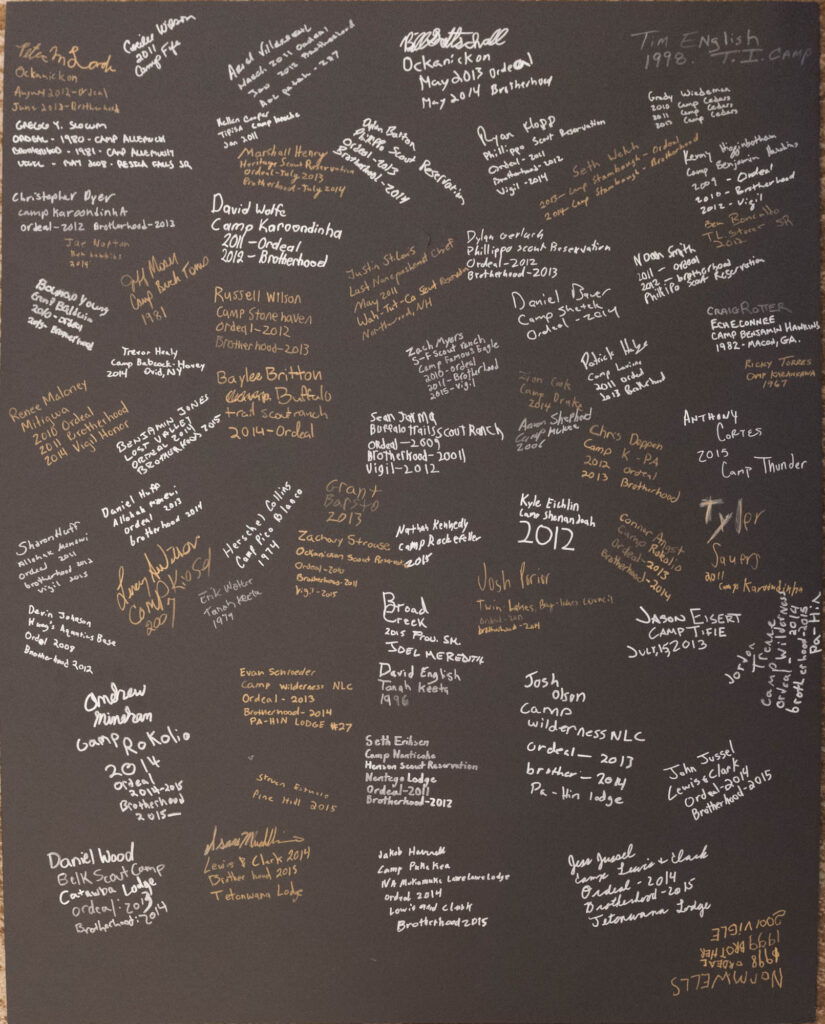 Ockanickon
August 2012-Ordeal
June 2013-Brotherhood
2011
Camp Fife
March 2011 Ordeal
Brotherhood
Ockanickon
May 2013 Ordeal
May 2014 Brotherhood
Tim English
1998. T.I. Camp
GREGG Y. SLOCUM
ORDEAL - 1980 - CAMP
BROTHERHOOD - 1981 - CAMP
VIGIL - MAY 2008 -
Jan 2011
Marshall Henry
Heritage Scout Reservation
Ordeal-July 2013
Brotherhood-July 2014
Dylan Barton
Phillippo Scout Reservation
Ordeal-2013
Brotherhood-2014
Ryan Klopp
Phillippo Scout Reservation
Ordeal-2011
Brotherhood-2012
Vigil-2014
Seth Welch
2013-Camp Stambaugh-Ordeal
2014-Camp Stambaugh-Brotherhood
Grady Wiedeman
2010 Camp Cedars
2011 Camp Cedars
2013 Camp Cedars
Kenny Higginbotham
Camp Benjamin Hawkins
2009 - Ordeal
2010 - Brotherhood
2012 - Vigil
2012
Christopher Dyer
Camp Karoondinha
Ordeal-2012 Brotherhood-2013
Joe Norton
2014
David Wolfe
Camp Karoondinha
2011-Ordeal
2012-Brotherhood
Dylan Gerlach
Phillippo Scout Reservation
Ordeal-2012
Brotherhood-2013
Noah Smith
2011 - ordeal
2012 - brotherhood
Phillippo Scout Reservation
Bowman Young
Camp Baldwin
2010-Ordeal
2015 Brotherhood
Camp Buck Toms
1981
Russell Wilson
Camp Stonehaven
Ordeal-2012
Brotherhood-2013
Last Nonpoisoned Chef
May 2011
Wah-Tut-Ca Scout Reservation
Northwood, NH
Daniel Bauer
Camp
Ordeal - 2014
CRAIG ROTTER
ECHECONNEE
CAMP BENJAMIN HAWKINS
1982 - MACON, GA.
Trevor Healy
Camp Babcock-Hovey
2014 Ovid, NY
Zach Myers
S-F Scout ranch
Camp Famous Eagle
2010-ordeal
2011-Brotherhood
2015-vigil
Patrick
2011 Ordeal
2013 Brotherhood
RICKY TORRES
CAMP KARANKAWA
1967
Renee Maloney
Mitigwa
2010 Ordeal
2011 Brotherhood
2014 Vigil Honor
BENJAMIN JONES
LOST VALLEY
ORDEAL 2014
BROTHERHOOD 2015
Baylee Britton
Buffalo
trail scout ranch
2014-Ordeal
Camp Drake
2014
Aaron Shepherd
Camp McKee
2006
Sean
Buffalo trails scout Ranch
Ordeal-2009
Brotherhood-20011
Vigil-2012
Chris Deppen
Camp K-PA
2012 ordeal
2013 Brotherhood
ANTHONY
CORTES
2015
Camp Thunder
Sharon Huff
Allohak Menewi
ordeal 2011
brotherhood 2012
vigil 2015
Daniel Huff
Allohak Menewi
ordeal 2013
brotherhood 2014
Herschel Collins
Camp Pico Blanco
1974
Grant
Barsto
2013
Zachary Strouse
Ockanickon Scout Reservation
Ordeal-2010
Brotherhood-2011
Vigil-2015
Nathan Kennedy
Camp Rockefeller
2015
Kyle Eichlin
Camp Shenandoah
2012
Connor
Camp Rokilio
Ordeal-2013
Brotherhood-2014
Tyler
Sauers
2011
Camp Karoondinha
Camp Kiosa
2007
Erik Walker
Tanah Keeta
1979
Josh Prior
Twin Lakes, Bay-lakes Council
Ordeal-2011
brotherhood-2014
Devin Johnson
Hung's Aquatics Base
Ordeal 2008
Brotherhood 2012
Broad
Creek
2015 Prov. SM.
JOEL MEREDITH
JASON EISERT
CAMP TIFIE
JULY, 15, 2013
Jordon
Trenne
Camp Wilderness
ordeal-2014
brotherhood-2015
Pa-Hin
Andrew
Minehan
Camp
Rokilio
2014
Ordeal
2014-2015
Brotherhood
2015-
Evan Schroeder
Camp Wilderness NLC
Ordeal - 2013
Brotherhood-2014
PA-HIN LODGE #27
David English
Tanah Keeta
1996
Josh
Olson
Camp
wilderness NLC
ordeal - 2013
brother - 2014
Pa-Hin lodge
Steven
Pine Hill 2015
Seth Eriksen
Camp Nanticoke
Henson Scout Reservation
Nentego Lodge
Ordeal-2011
Brotherhood-2012
John Jussel
Lewis & Clark
Ordeal-2014
Brotherhood-2015
Daniel Wood
Belk Scout Camp
Catawba Lodge
ordeal: 2013
Brotherhood: 2014
Lewis & Clark 2014
Brotherhood 2015
Tetonwana Lodge
Jakob
Ordeal 2014
Lewis and Clark
Brotherhood 2015
Jess Jussel
Camp Lewis & Clark
Ordeal - 2014
Brotherhood-2015
Tetonwana Lodge
NORM WELLS
1998 ORDEAL
1999 BROTHER
2001 VIGLE